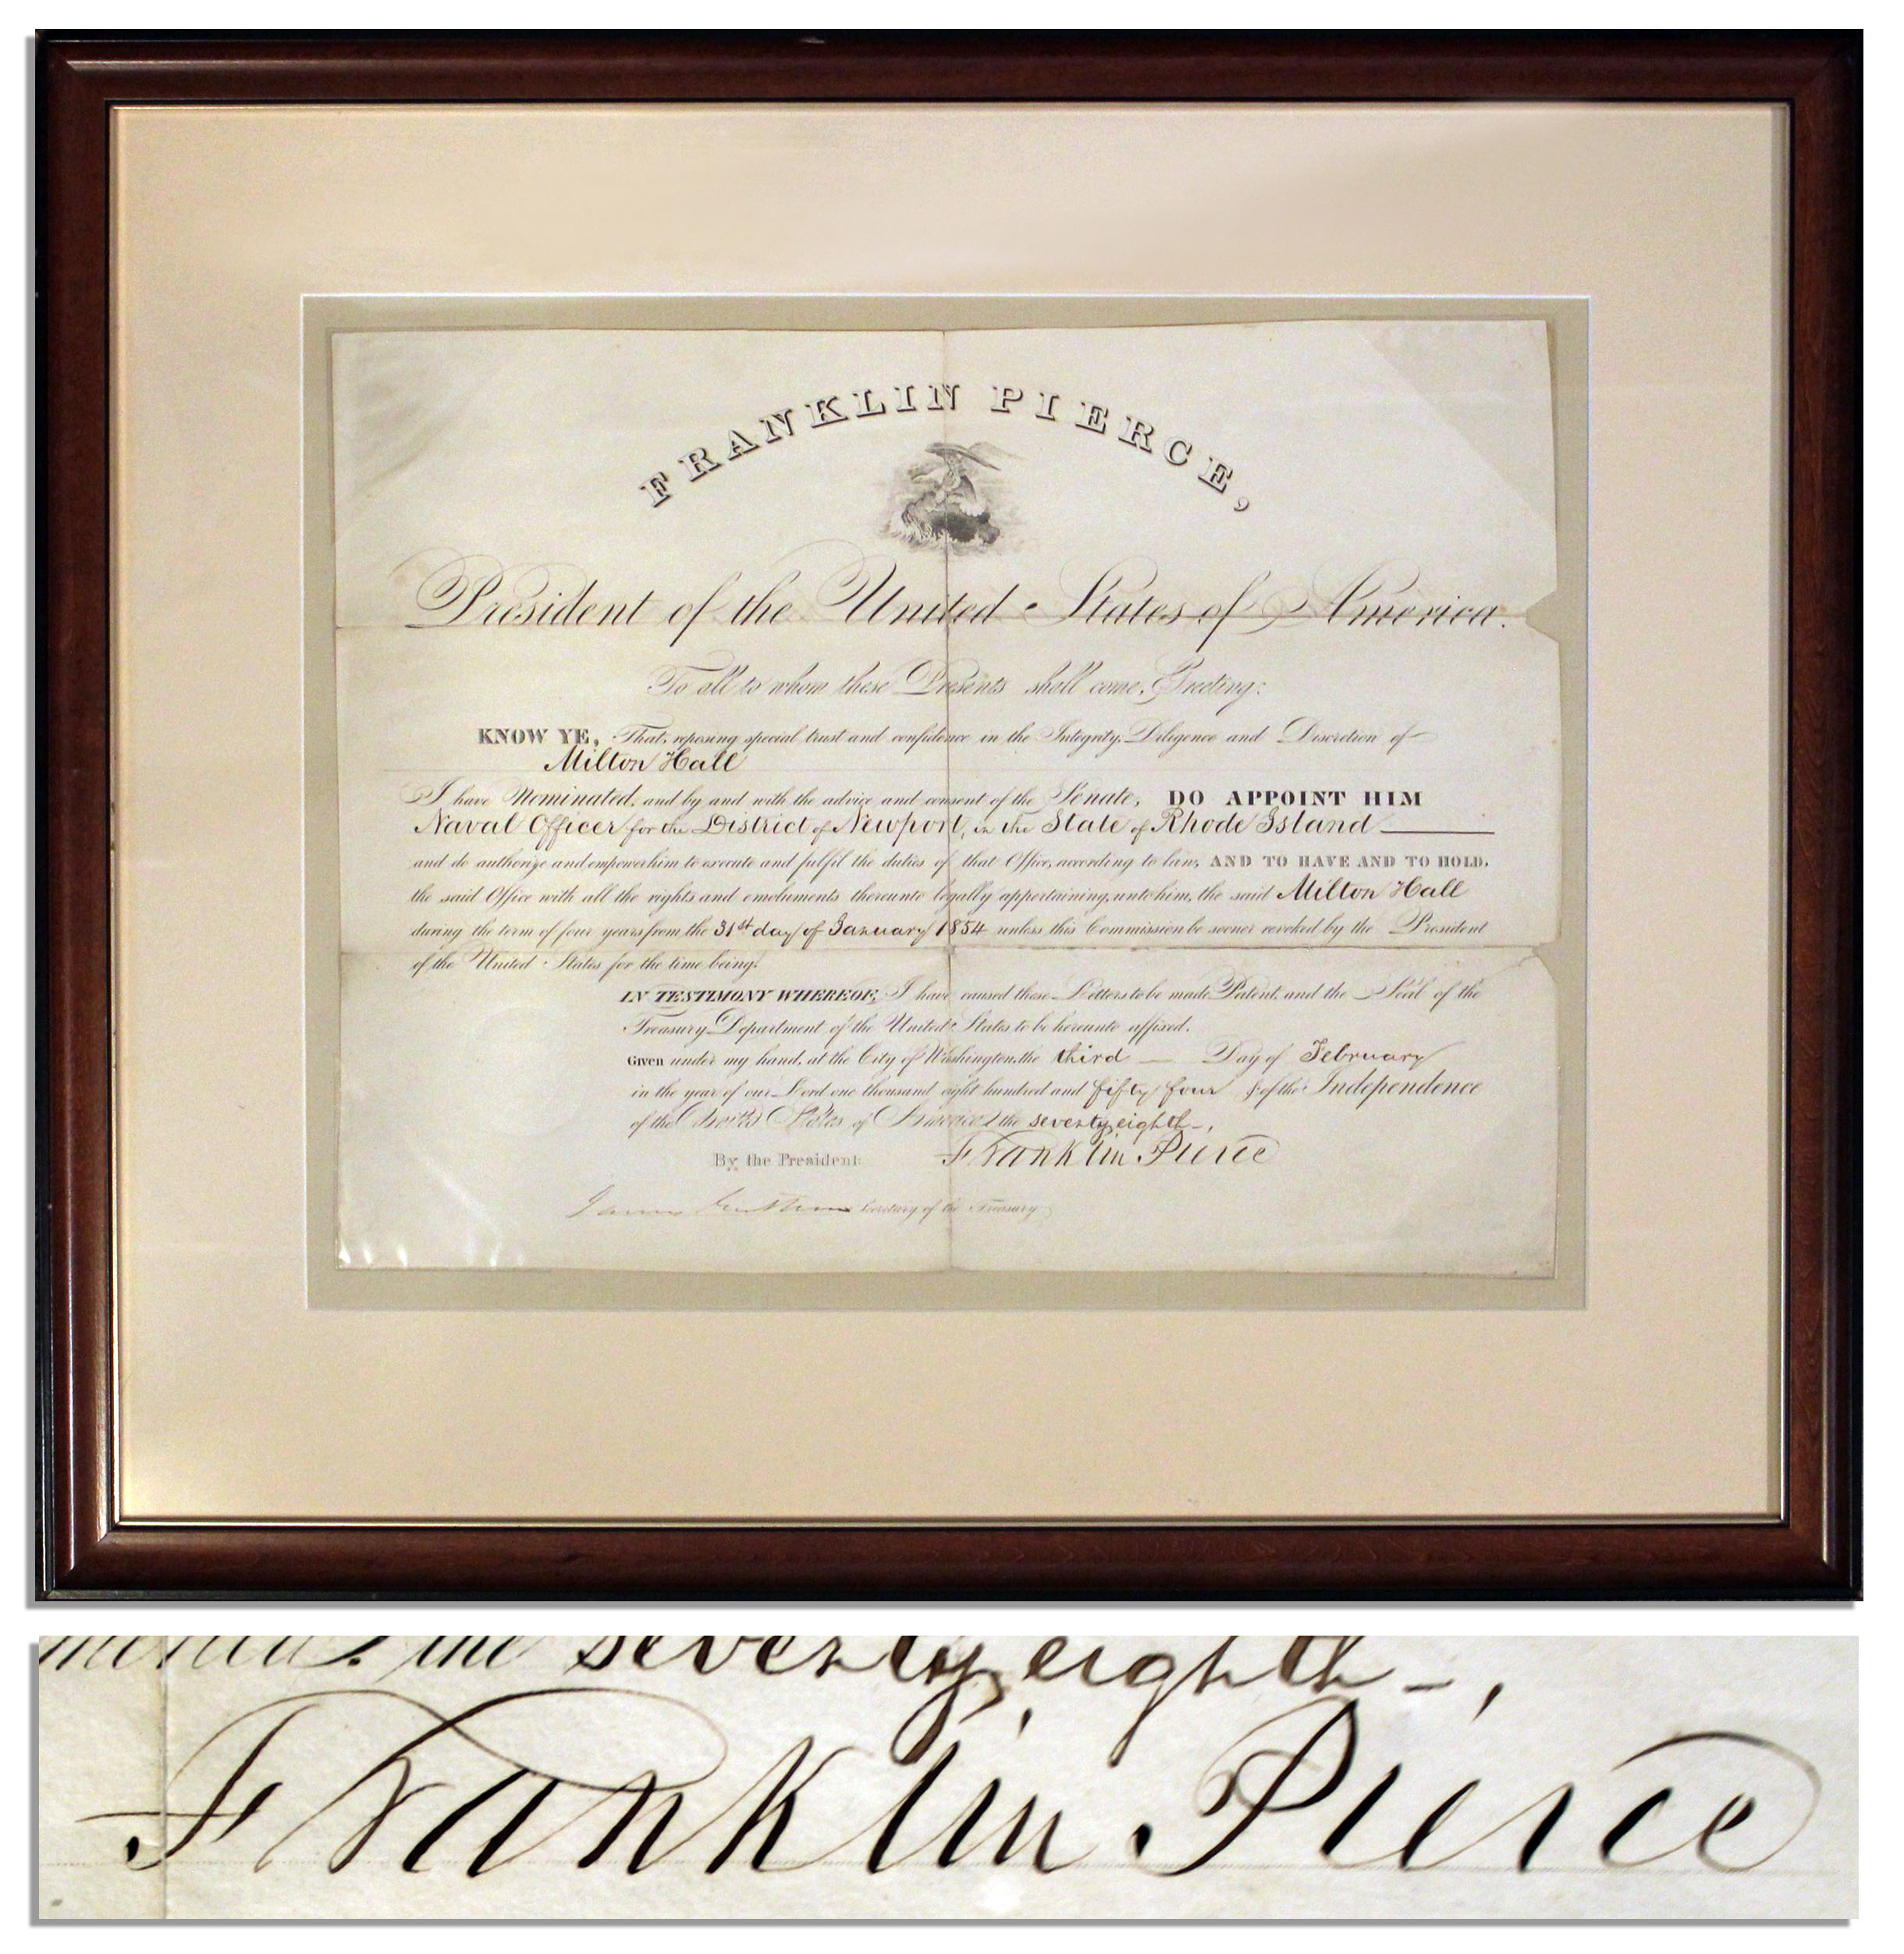 FRANKLIN PIERCE,
President of the United States of America.
To all to whom these Presents shall come, Greeting:
KNOW YE, That, reposing special trust and confidence in the Integrity, Diligence and Discretion of
Milton Hall
I have Nominated, and by and with the advice and consent of the Senate, DO APPOINT HIM
Naval Officer for the District of Newport, in the State of Rhode Island
and do authorize and empower him to execute and fulfil the duties of that Office, according to law, AND TO HAVE AND TO HOLD,
the said Office with all the rights and emoluments thereunto legally appertaining, unto him, the said Milton Hall
during the term of four years from the 31st day of January 1854 unless this Commission be sooner revoked by the President
of the United States for the time being.
IN TESTIMONY WHEREOF, I have caused these Letters to be made Patent, and the Seal of the
Treasury Department of the United States to be hereunto affixed.
Given under my hand, at the City of Washington, the third — Day of February
in the year of our Lord one thousand eight hundred and fifty four & of the Independence
of the United States of America, the seventy eighth –,
By the President: Franklin Pierce
James Guthrie Secretary of the Treasury
merica, the seventy eighth –,
Franklin Pierce